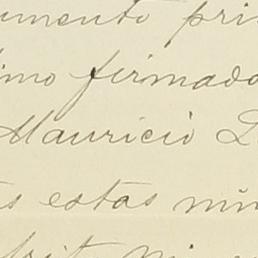 umento pri
imo firmado
Mauricio L
s estas nin